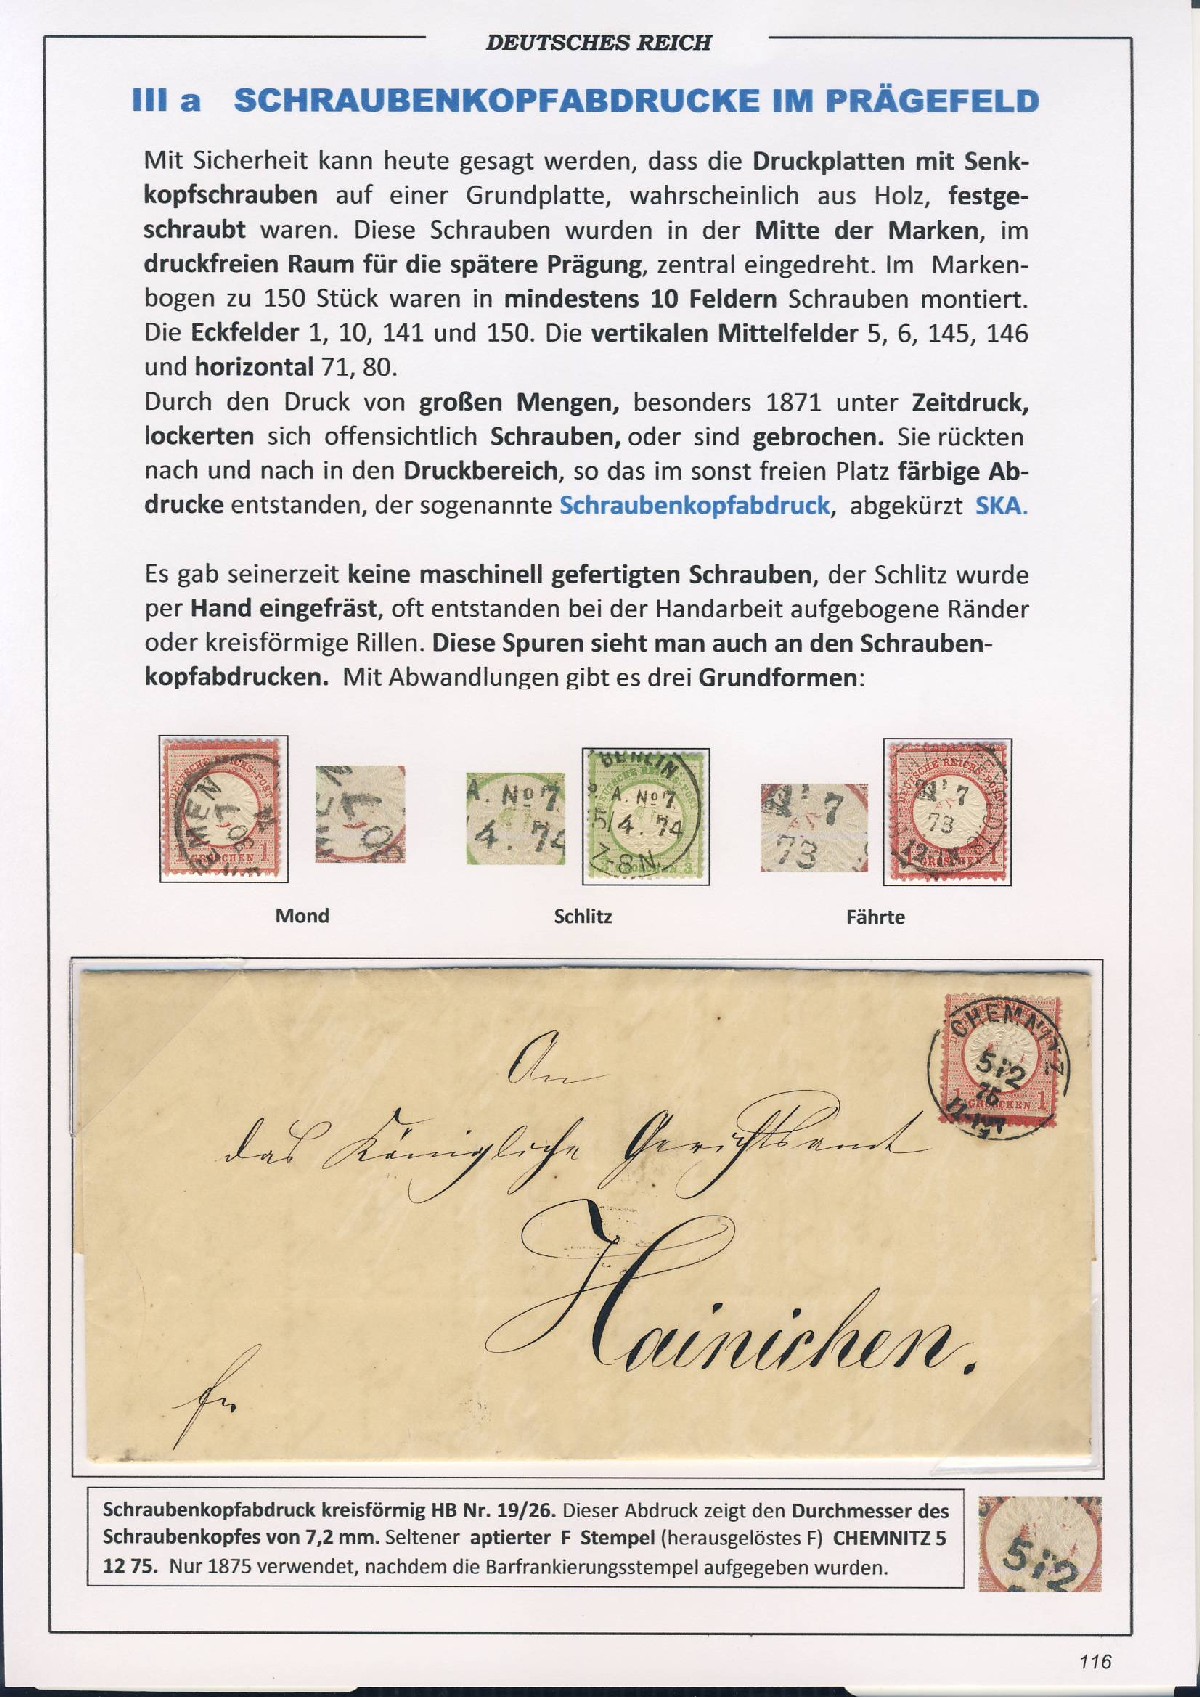 DEUTSCHES REICH
III a SCHRAUBENKOPFABDRUCKE IM PRÄGEFELD
Mit Sicherheit kann heute gesagt werden, dass die Druckplatten mit Senk-
kopfschrauben auf einer Grundplatte, wahrscheinlich aus Holz, festge-
schraubt waren. Diese Schrauben wurden in der Mitte der Marken, im
druckfreien Raum für die spätere Prägung, zentral eingedreht. Im Marken-
bogen zu 150 Stück waren in mindestens 10 Feldern Schrauben montiert.
Die Eckfelder 1, 10, 141 und 150. Die vertikalen Mittelfelder 5, 6, 145, 146
und horizontal 71, 80.
Durch den Druck von großen Mengen, besonders 1871 unter Zeitdruck,
lockerten sich offensichtlich Schrauben, oder sind gebrochen. Sie rückten
nach und nach in den Druckbereich, so das im sonst freien Platz färbige Ab-
drucke entstanden, der sogenannte Schraubenkopfabdruck, abgekürzt SKA.
Es gab seinerzeit keine maschinell gefertigten Schrauben, der Schlitz wurde
per Hand eingefräst, oft entstanden bei der Handarbeit aufgebogene Ränder
oder kreisförmige Rillen. Diese Spuren sieht man auch an den Schrauben-
kopfabdrucken. Mit Abwandlungen gibt es drei Grundformen:
A. No 7
4. 74
BERLIN
A. No 7
5/4. 74
7-8N.
7
73
7
73
GROSCHEN 1
1 GROSCHEN 1
Mond Schlitz Fährte
CHEMNITZ
5 12
75
1 GROSCHEN 1
An
das Königliche Gerichtsamt
Hainichen.
fr.
Schraubenkopfabdruck kreisförmig HB Nr. 19/26. Dieser Abdruck zeigt den Durchmesser des
Schraubenkopfes von 7,2 mm. Seltener aptierter F Stempel (herausgelöstes F) CHEMNITZ 5
12 75. Nur 1875 verwendet, nachdem die Barfrankierungsstempel aufgegeben wurden.
5 12
116